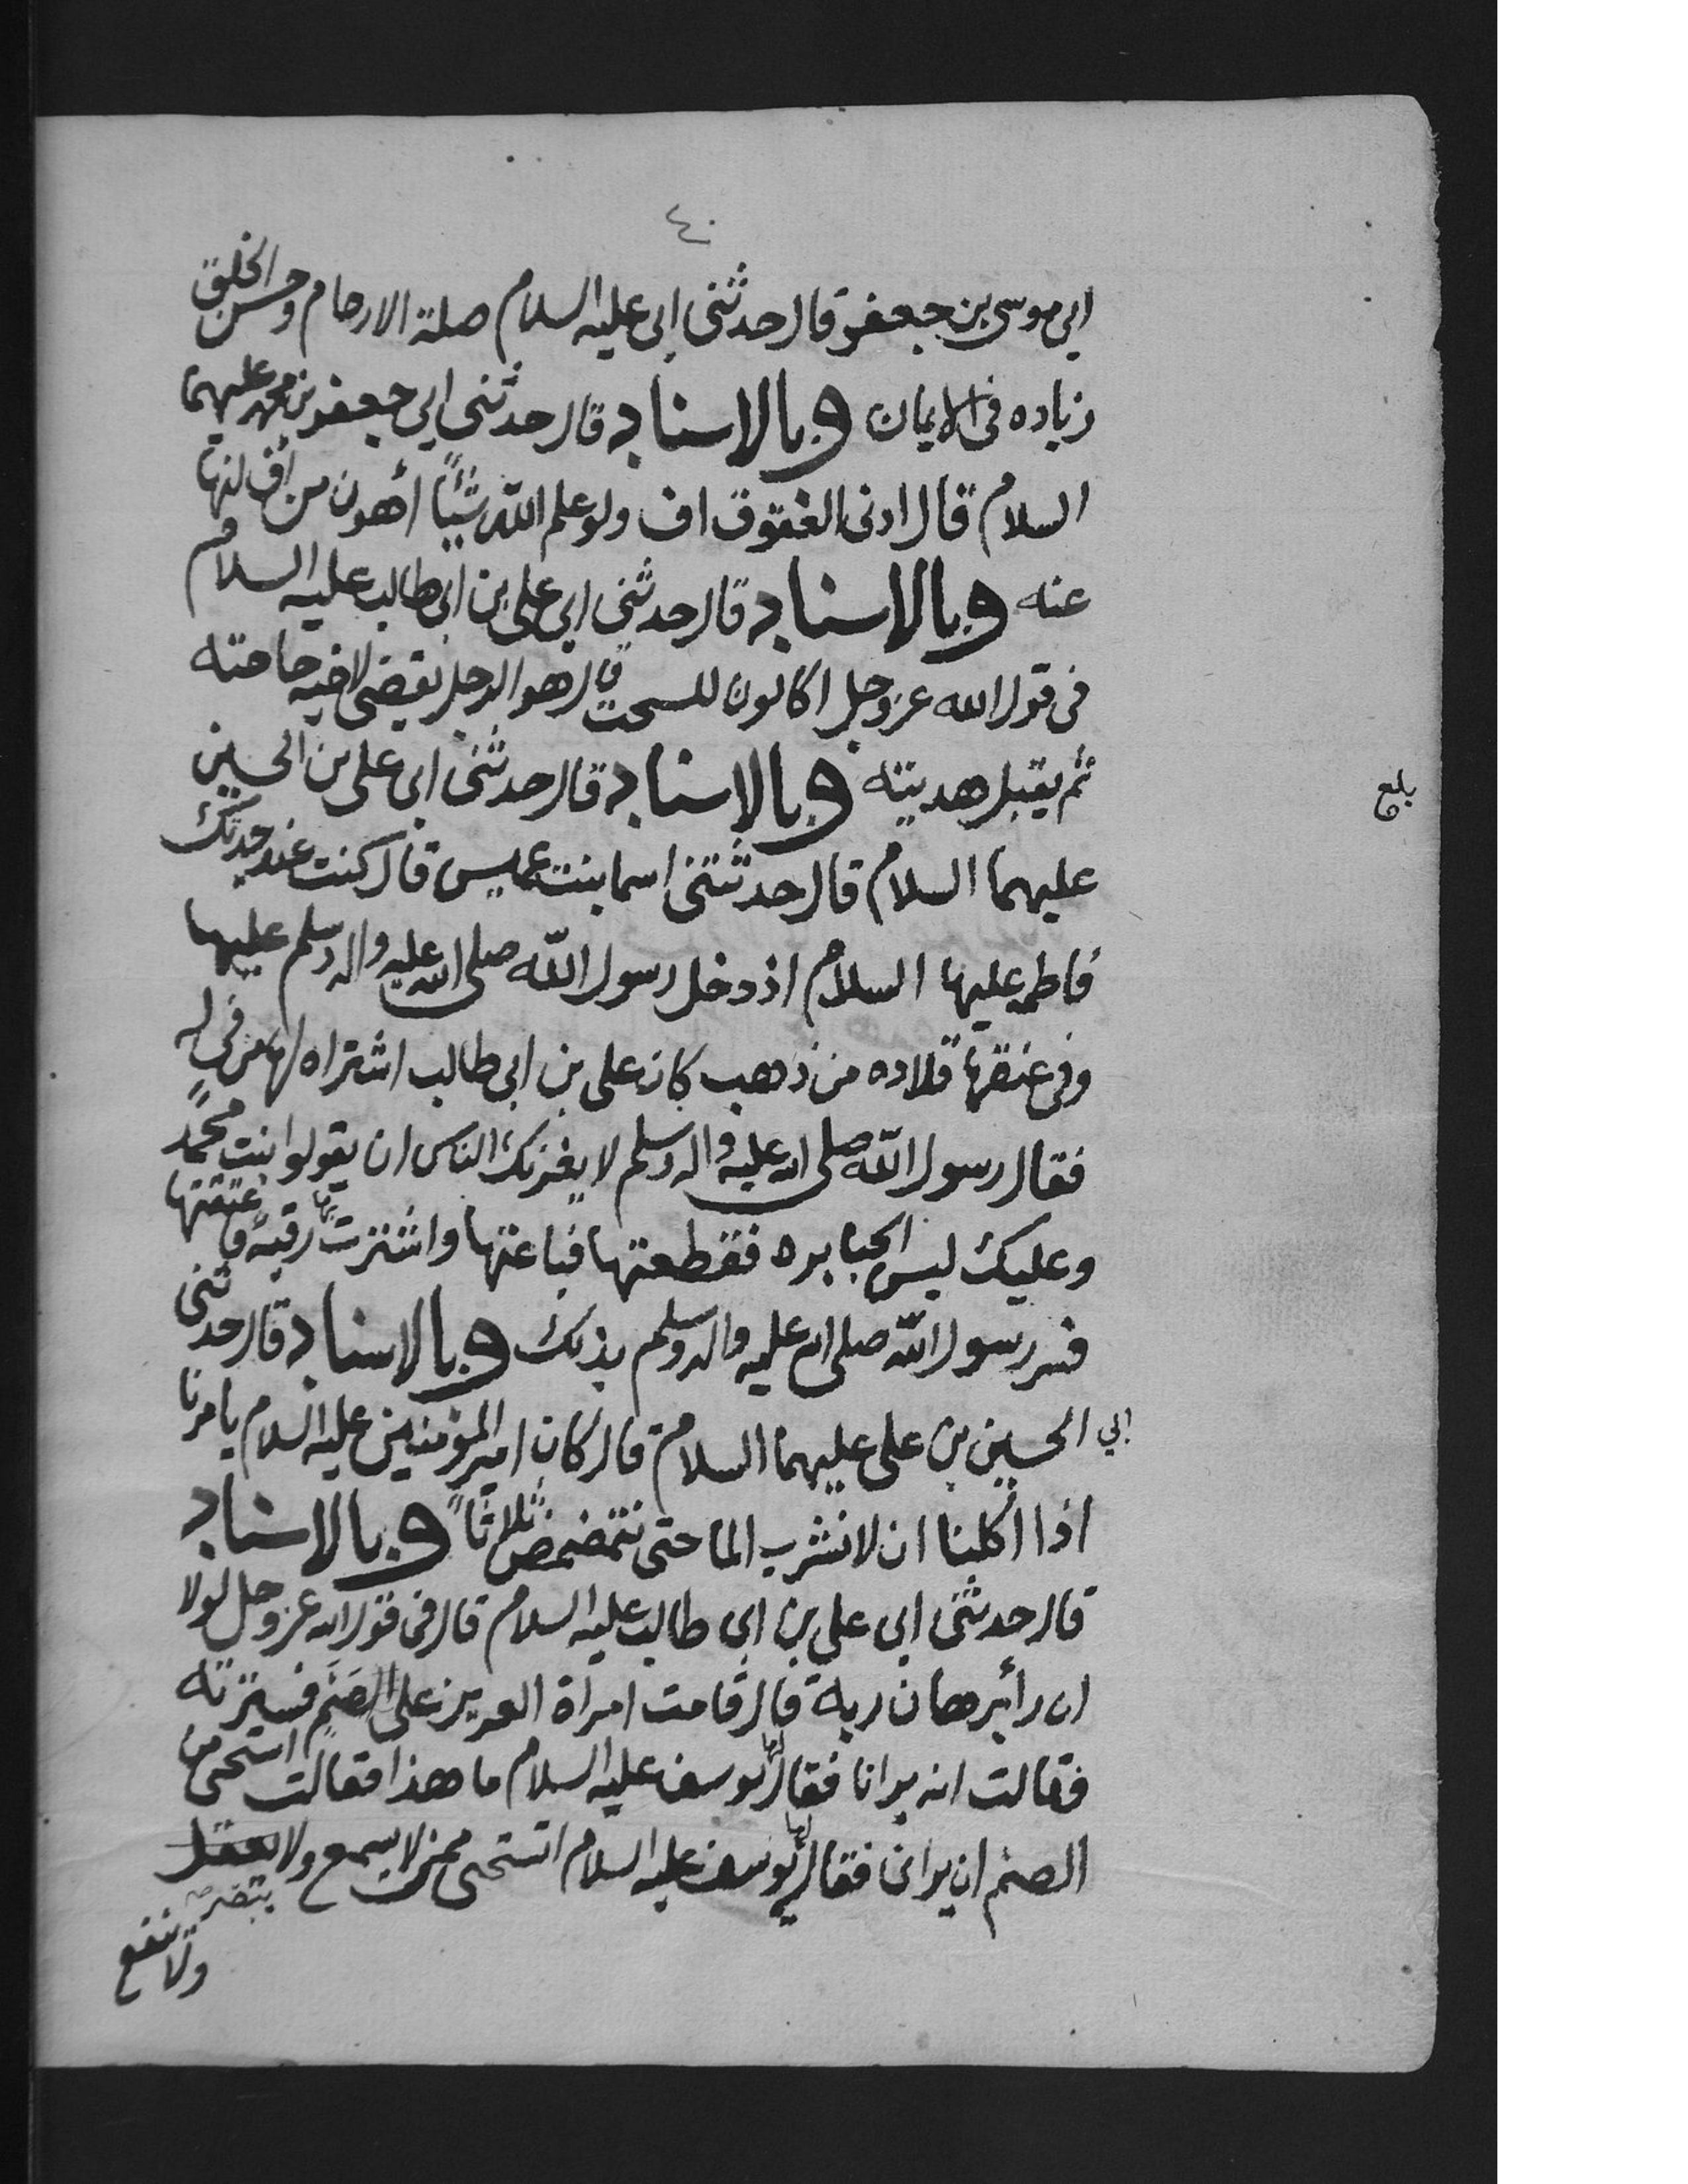 ٤٠
ابي موسى بن جعفر قال حدثني ابي عليه السلام صلة الارحام وحسن الخلق
زياده في الايمان وبالاسناد قال حدثني ابي جعفر بن محمد عليهما
السلام قال ادنى العقوق اف ولو علم الله شيئًا أهون من أف لنها
عنه وبالاسناد قال حدثني ابي علي بن ابي طالب عليه السلام
في قول الله عز وجل اكالون للسحت قال هو الرجل يقضي لاخيه حاجته
ثم يقبل هديته وبالاسناد قال حدثني ابي علي بن الحسين
بلغ
عليهما السلام قال حدثتني اسما بنت عميس قال كنت عند جدتك
فاطمه عليها السلام اذ دخل رسول الله صلى الله عليه واله وسلم عليها
وفي عنقها قلاده من ذهب كان علي بن ابي طالب اشتراه لها من في له
فقال رسول الله صلى الله عليه واله وسلم لا يغرنك الناس ان يقولوا بنت محمدٍ
وعليك لبس الجبابره فقطعتها فباعتها واشترت بها رقبة فاعتقتها
فسر رسول الله صلى الله عليه واله وسلم بذلك وبالاسناد قال حدثني
ابي الحسين بن علي عليهما السلام قال كان امير المؤمنين عليه السلام يامرنا
اذا أكلنا ان لا نشرب الما حتى نتمضمض ثلاثًا وبالاسناد
قال حدثني ابي علي بن ابي طالب عليه السلام قال في قول الله عز وجل لولا
ان رأ برهان ربه قال قامت امراة العزيز على الصنم فسترته
فقالت انه يرانا فقال لها يوسف عليه السلام ما هذا فقالت استحي من
الصنم ان يراني فقال لها يوسف عليه السلام اتستحي ممن لا يسمع ولا يعقل
يبصر
ولا ينفع